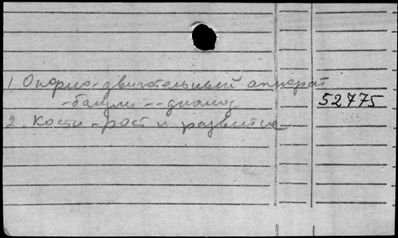 1. Опорно-двигательный аппарат
52775
2. Кости - рост и развитие